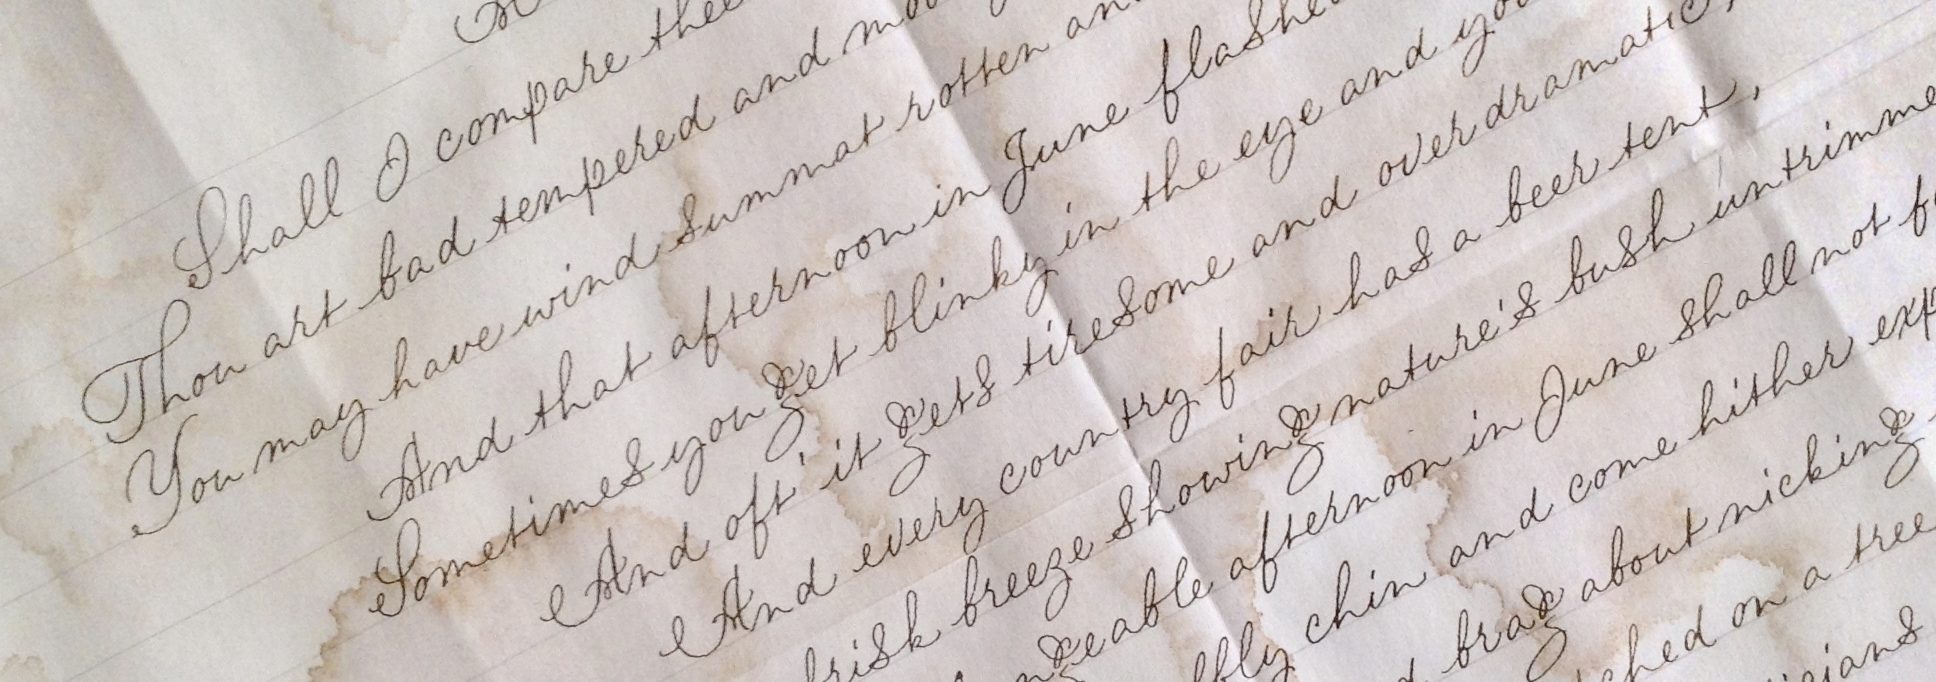 Shall I compare thee
Thou art bad tempered and mo
You may have wind summat rotten an
And that afternoon in June flashed
Sometimes you get blinky in the eye and yo
And oft' it gets tiresome and overdramatic,
And every country fair has a beer tent,
risk breeze showing nature's bush untrimme
ngeable afternoon in June shall not f
ffly chin and come hither exp
d brag about nicking
ched on a tree
icians